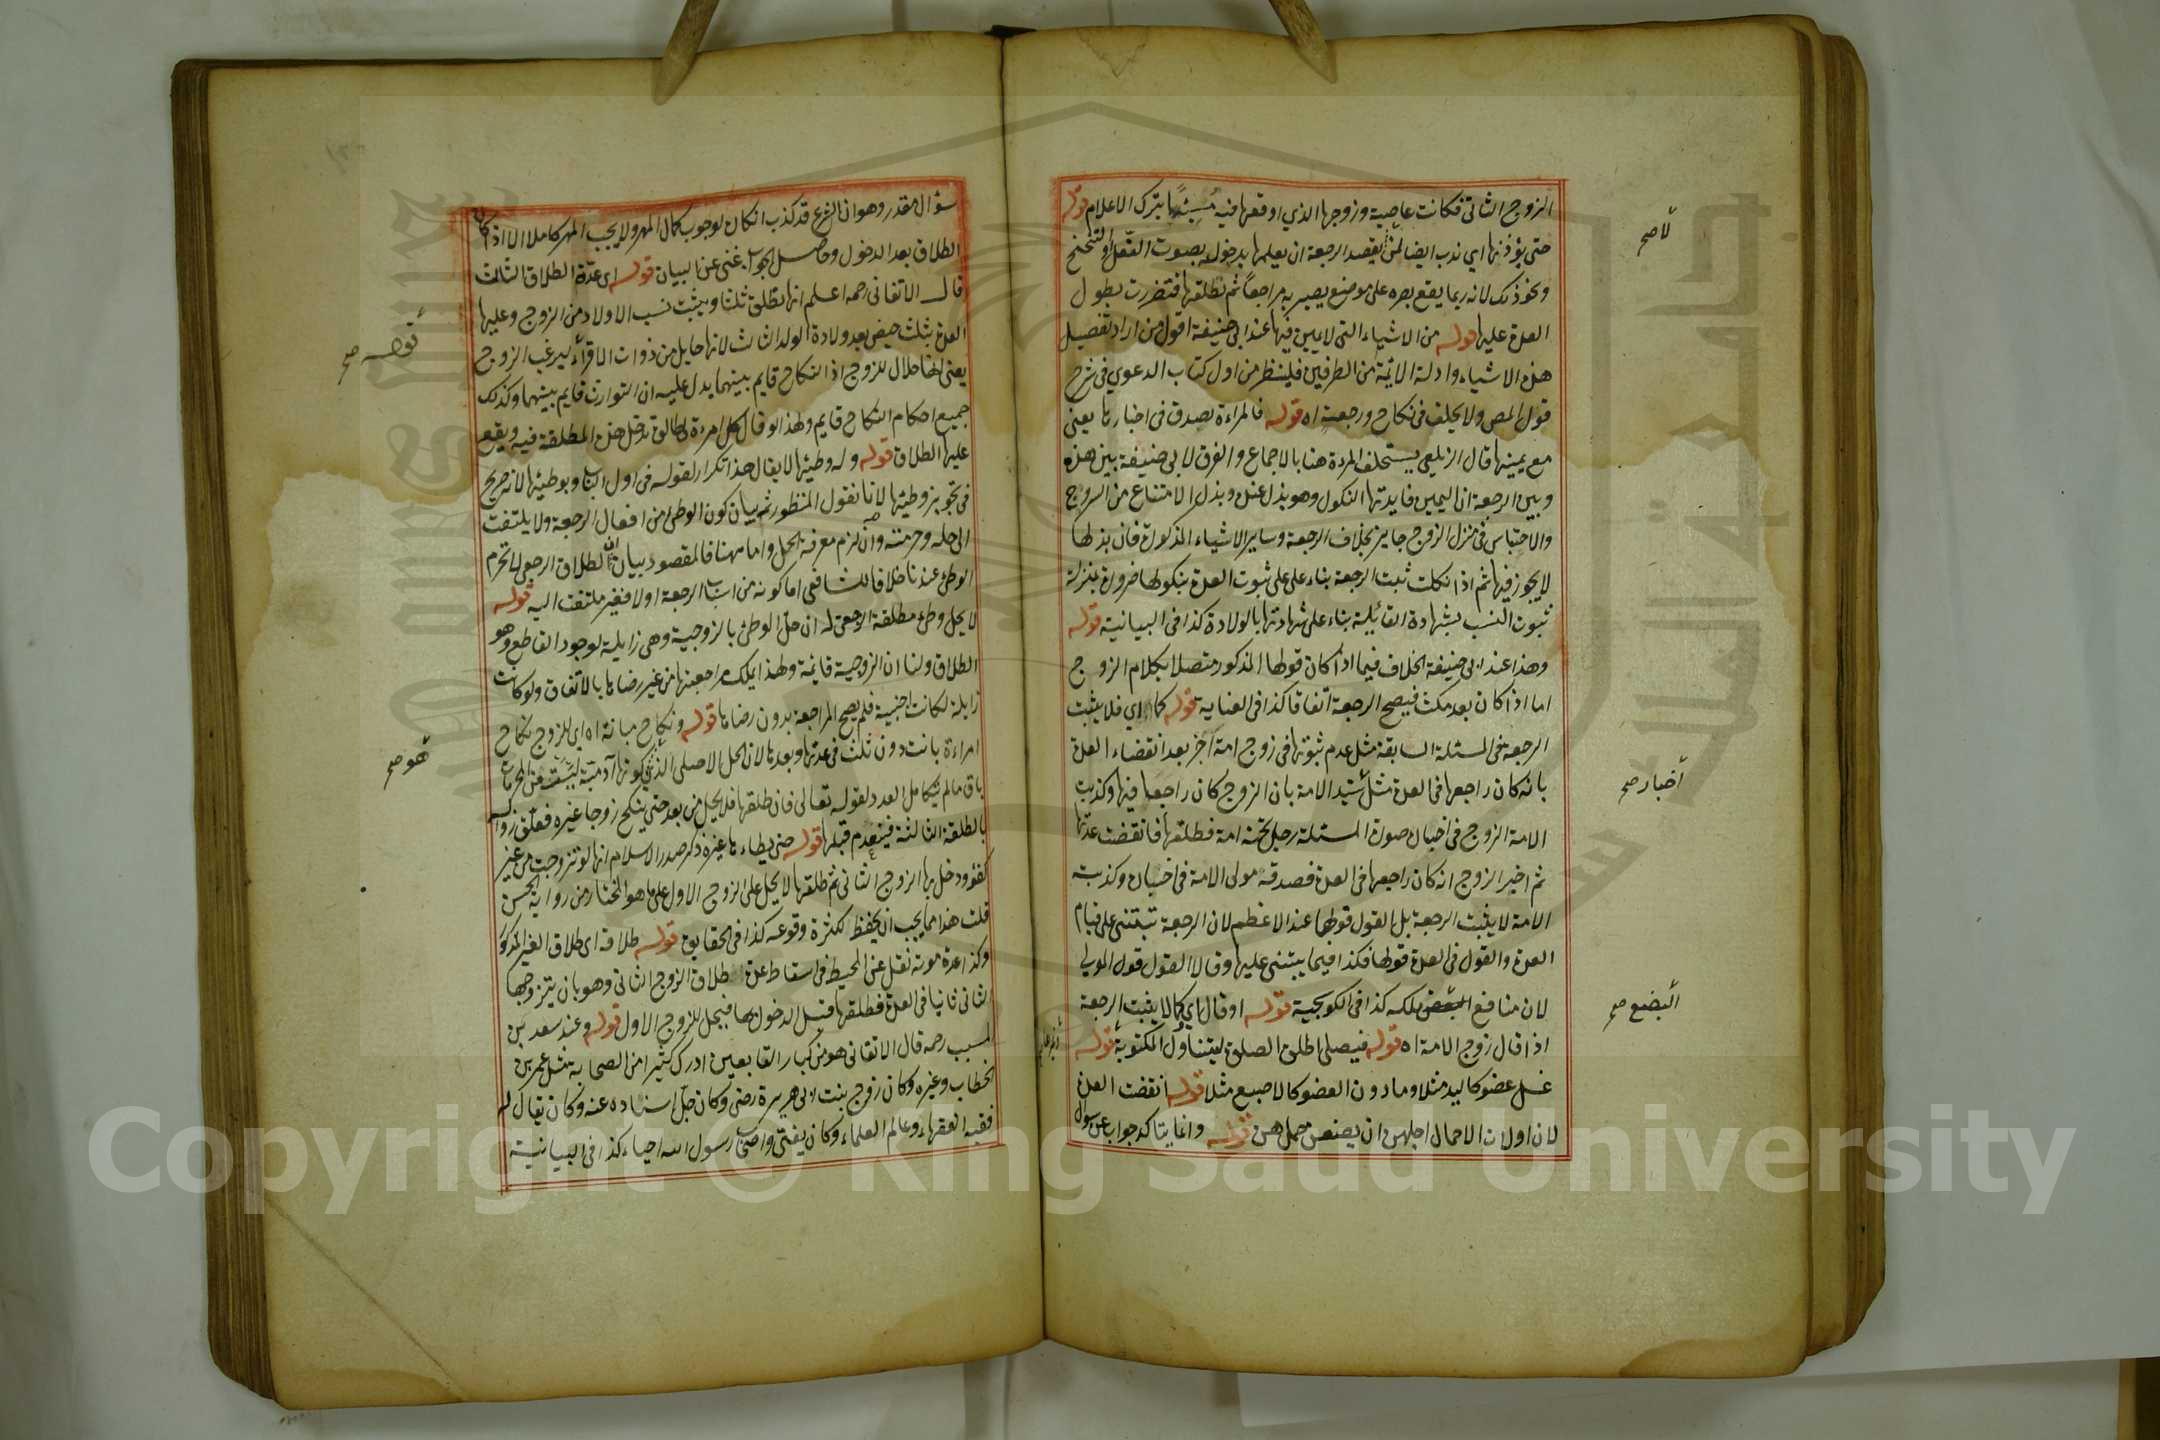 الزوج الثاني فكانت عاصية وزوجها الذي اوقعها فيه مسيئا بترك الاعلام قوله
حتى يؤذنها اي ندب ايضا لمن لم يقصد الرجعة ان يعلمها بدخوله بصوت النعل او التنحنح
ونحو ذلك لانه ربما يقع بصره على موضع يصير به مراجعا ثم تطلقها فتتضرر بطول
العدة عليها قوله من الاشياء التي لا يمين فيها عند ابي حنيفة اقول من اراد تفصيل
هذه الاشياء وادلة الائمة من الطرفين فلينظر من اول كتاب الدعوي في شرح
قول المص ولا يحلف في نكاح ورجعة اه قوله فالمراءة تصدق في اخبارها يعني
مع يمينها قال الزيلعي يستحلف المرءة هنا بالاجماع والفرق لابي حنيفة بين هذه
وبين الرجعة ان اليمين فايدتها النكول وهو بذل عنده وبذل الامتناع من الزوج
والاحتباس في منزل الزوج جايز بخلاف الرجعة وساير الاشياء المذكورة فان بذلها
لا يجوز فيها ثم اذا نكلت ثبت الرجعة بناء على على ثبوت العدة بنكولها ضرورة بمنزلة
ثبوت النسب بشهادة القابلة بناء على شهادتها بالولادة كذا في البيانية قوله
وهذا عند ابي حنيفة الخلاف فيما اذا كان قولها المذكور متصلا بكلام الزوج
اما اذا كان بعد مكث فيصح الرجعة اتفاقا كذا في العناية قوله كما اي فلا يثبت
الرجعة في المسئلة السابقة مثل عدم ثبوتها في زوج امة آخر بعد انقضاء العدة
بانه كان راجعها في العدة مثل سيد الامة بان الزوج كان راجعها فيها وكذبت
الامة الزوج في اخباره صورة المسئلة رجل تحته امة فطلقها فانقضت عدتها
ثم اخبر الزوج انه كان راجعها في العدة فصدقه مولى الامة في اخباره وكذبته
الامة لا يثبت الرجعة بل القول قولها عند الاعظم لان الرجعة تبتنى على قيام
العدة والقول في العدة قولها فكذا فيما يبتنى عليها وقالا القول قول المولى
لان منافع البضع ملكه كذا في الكوبجية قوله او قال اي كما لا يثبت الرجعة
اذا قال زوج الامة اه قوله فيصلي اطلق الصلوة ليتناول المكتوبة قوله
غسل عضو كاليد مثلا وما دون العضو كالاصبع مثلا قوله انقضت العدة
لان اولات الاحمال اجلهن ان يضعن حملهن قوله وانما يتاكد جواب عن سوال
لا صح
اخبار صح
البضع صح
سؤال مقدر وهو ان الشرع قد كذب انكاره لوجوب كمال المهر ولا يجب المهر كاملا الا اذا كان
الطلاق بعد الدخول وحاصل الجواب غنى عن البيان قوله اي عدة الطلاق الثالث
قال الاتقاني رحمه اعلم انها تطلق ثلثا ويثبت نسب الاولاد من الزوج وعليها
العدة بثلث حيض بعد ولادة الولد الثالث لانها حايل من ذوات الاقراء ليرغب الزوج
يعني انها حلال للزوج اذ النكاح قايم بينهما يدل عليه ان التوارث قايم بينهما وكذلك
جميع احكام النكاح قايم ولهذا لو قال كل امرءة لي طالق تدخل هذه المطلقة فيه ويقع
عليها الطلاق قوله وله وطئها لا يقال هذا تكرار لقوله في اول الباب وبوطئها لانه صريح
في تجويز وطئها لانا نقول المنظور ثم بيان كون الوطئ من افعال الرجعة ولا يلتفت
الى حله وحرمته وان لزم معرفة الحل واما ههنا فالمقصود بيان ان الطلاق الرجعي لا يحرم
الوطئ عندنا خلافا للشافعي اما كونه من اسباب الرجعة او لا فغير ملتفت اليه قوله
لا يحل وطئ مطلقة الرجعي له ان حل الوطئ بالزوجية وهي زايلة لوجود القاطع وهو
الطلاق ولنا ان الزوجية قايمة ولهذا يملك مراجعتها من غير رضاها بالاتفاق ولو كانت
زايلة لكانت اجنبية فلم يصح المراجعة بدون رضاها قوله ونكاح مبانة اه اي للزوج نكاح
امراءة بانت دون ثلث في عدتها وبعدها لان الحل الاصلي الذي كونها آدمية ليست من المحرمات
باق ما لم يتكامل العدد لقوله تعالى فان طلقها فلا يحل من بعد حتى ينكح زوجا غيره فعلق زواله
بالطلقة الثالثة فينعدم قبلها قوله حتى يطاءها غيره ذكر صدر الاسلام انها لو تزوجت من غير
كفؤ ودخل بها الزوج الثاني ثم طلقها لا يحل على الزوج الاول على ما هو المختار من رواية الحسن
قلت هذا مما يجب ان يحفظ لكثرة وقوعه كذا في الحقايق قوله طلاقه اي طلاق الغير المذكور
وكذا عدة موته نقل عن المحيط في اسقاط عدة طلاق الزوج الثاني وهو بان يتزوجها
الثاني ثانيا في العدة فطلقها قبل الدخول بها فيحل للزوج الاول قوله وعند سعيد بن
المسيب رحمه قال الاتقاني هو من كبار التابعين ادرك كثيرا من الصحابة مثل عمر بن
الخطاب وغيره وكان زوج بنت ابي هريرة رضي وكان جل اسناده عنه وكان يقال له
فقيه الفقهاء وعالم العلماء وكان يفتي واصحاب رسول الله احياء كذا في البيانية
قوله صح
هو صح
Copyright © King Saud University